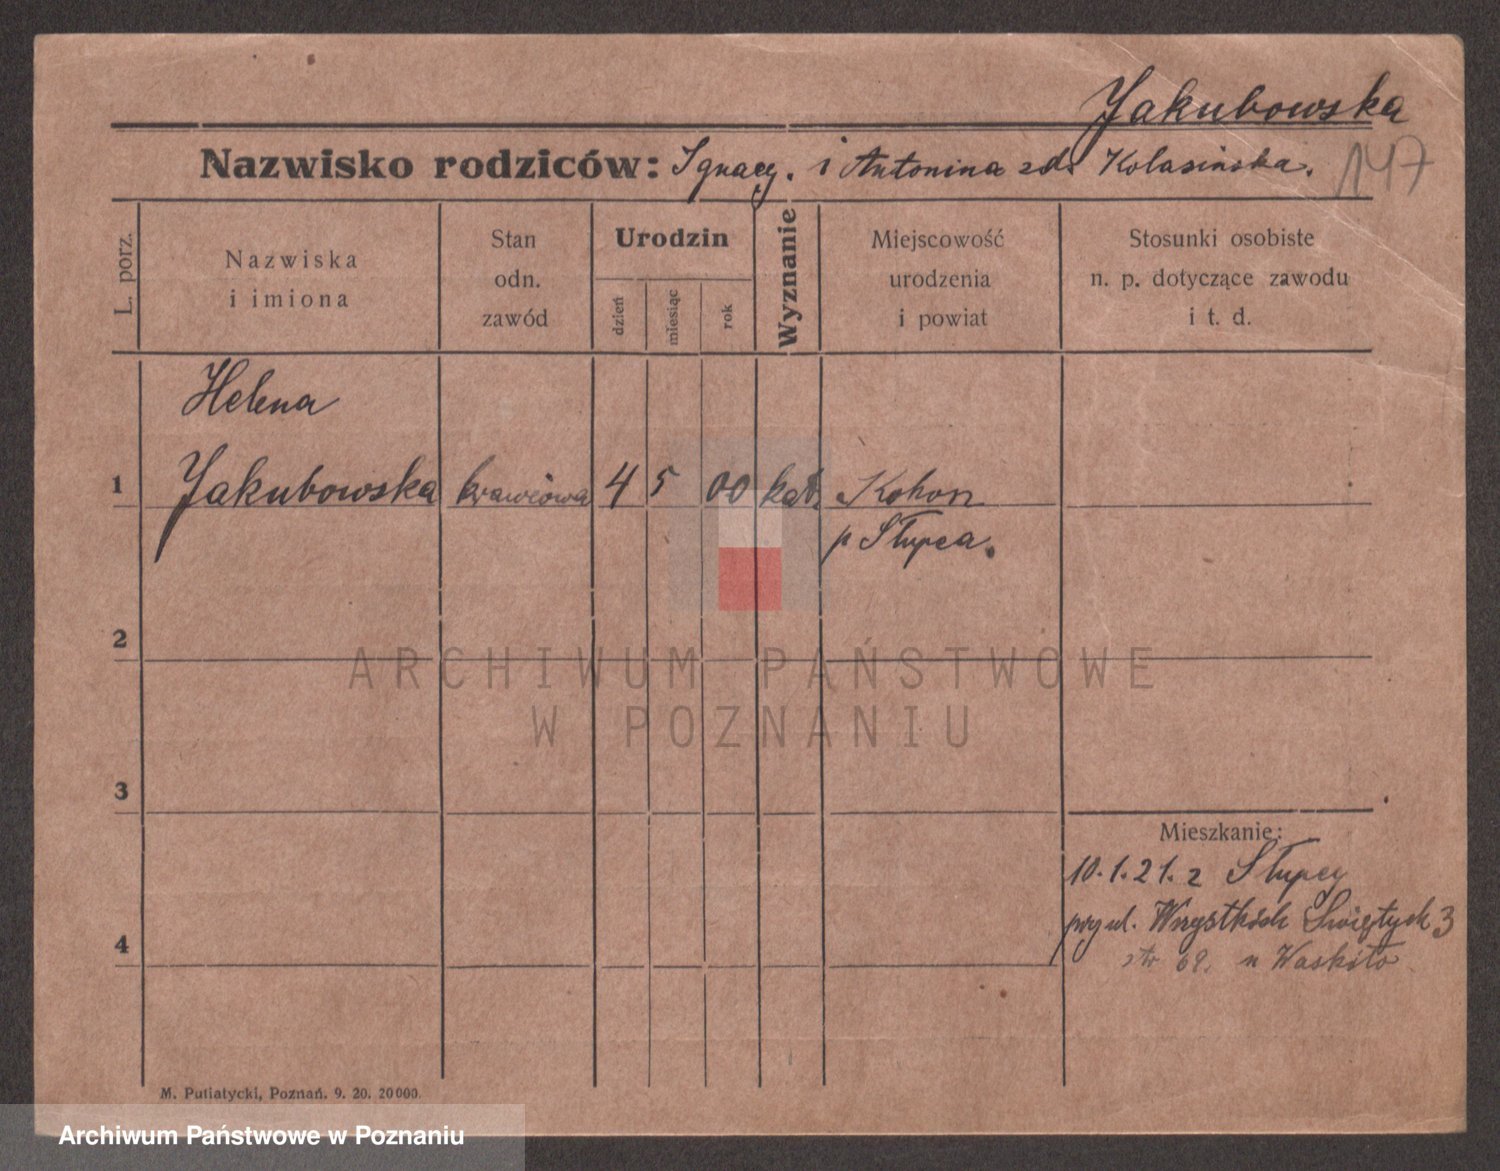 Jakubowska
Nazwisko rodziców: Ignacy. i Antonina zd. Kolasińska.
147
L. porz.
Nazwiska
i imiona
Stan
odn.
zawód
Urodzin
dzień
miesiąc
rok
Wyznanie
Miejscowość
urodzenia
i powiat
Stosunki osobiste
n. p. dotyczące zawodu
i t. d.
Helena
1 Jakubowska krawcowa 4 5 00 kat. Kohon
p Słupca.
2
ARCHIWUM PAŃSTWOWE
W POZNANIU
3
Mieszkanie:
10.1.21. z Słupcy
przy ul. Wszystkich Świętych 3
4
str 69. u Waskito
M. Putiatycki, Poznań. 9. 20. 20000.
Archiwum Państwowe w Poznaniu